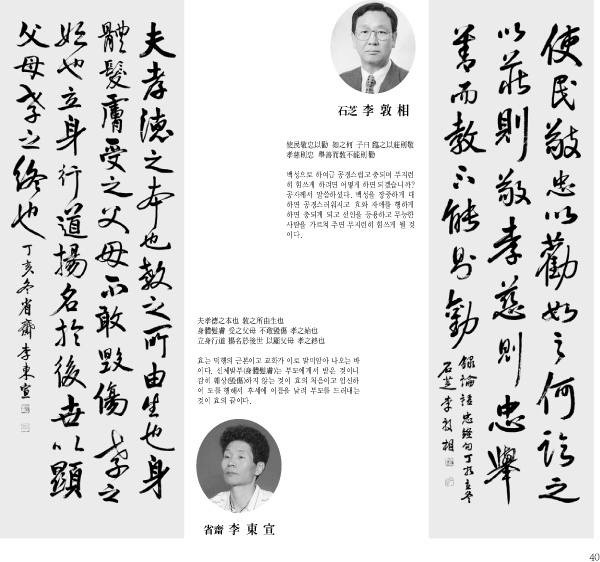 石芝 李敦相
使民敬忠以勸 如之何 子曰 臨之以莊則敬
孝慈則忠 擧善而敎不能則勸
백성으로 하여금 공경스럽고 충되며 부지런
히 힘쓰게 하려면 어떻게 하면 되겠습니까?
공자께서 말씀하셨다. 백성을 장중하게 대
하면 공경스러워지고 효와 자애를 행하게
하면 충되게 되고 선인을 등용하고 무능한
사람을 가르쳐 주면 부지런히 힘쓰게 될 것
이다.
使民敬忠以勸如之何臨之
以莊則敬孝慈則忠擧
善而教不能則勸
錄論語 忠經句丁亥立冬
石芝李敦相
夫孝德之本也教之所由生也身
體髮膚受之父母不敢毀傷孝之
始也立身行道揚名於後世以顯
父母孝之終也
丁亥冬省齋李東宣
夫孝德之本也 敎之所由生也
身體髮膚 受之父母 不敢毀傷 孝之始也
立身行道 揚名於後世 以顯父母 孝之終也
효는 덕행의 근본이고 교화가 이로 말미암아 나오는 바
이다. 신체발부(身體髮膚)는 부모에게서 받은 것이니
감히 훼상(毀傷)하지 않는 것이 효의 처음이고 입신하
여 도를 행해서 후세에 이름을 날려 부모를 드러내는
것이 효의 끝이다.
省齋 李東宣
40